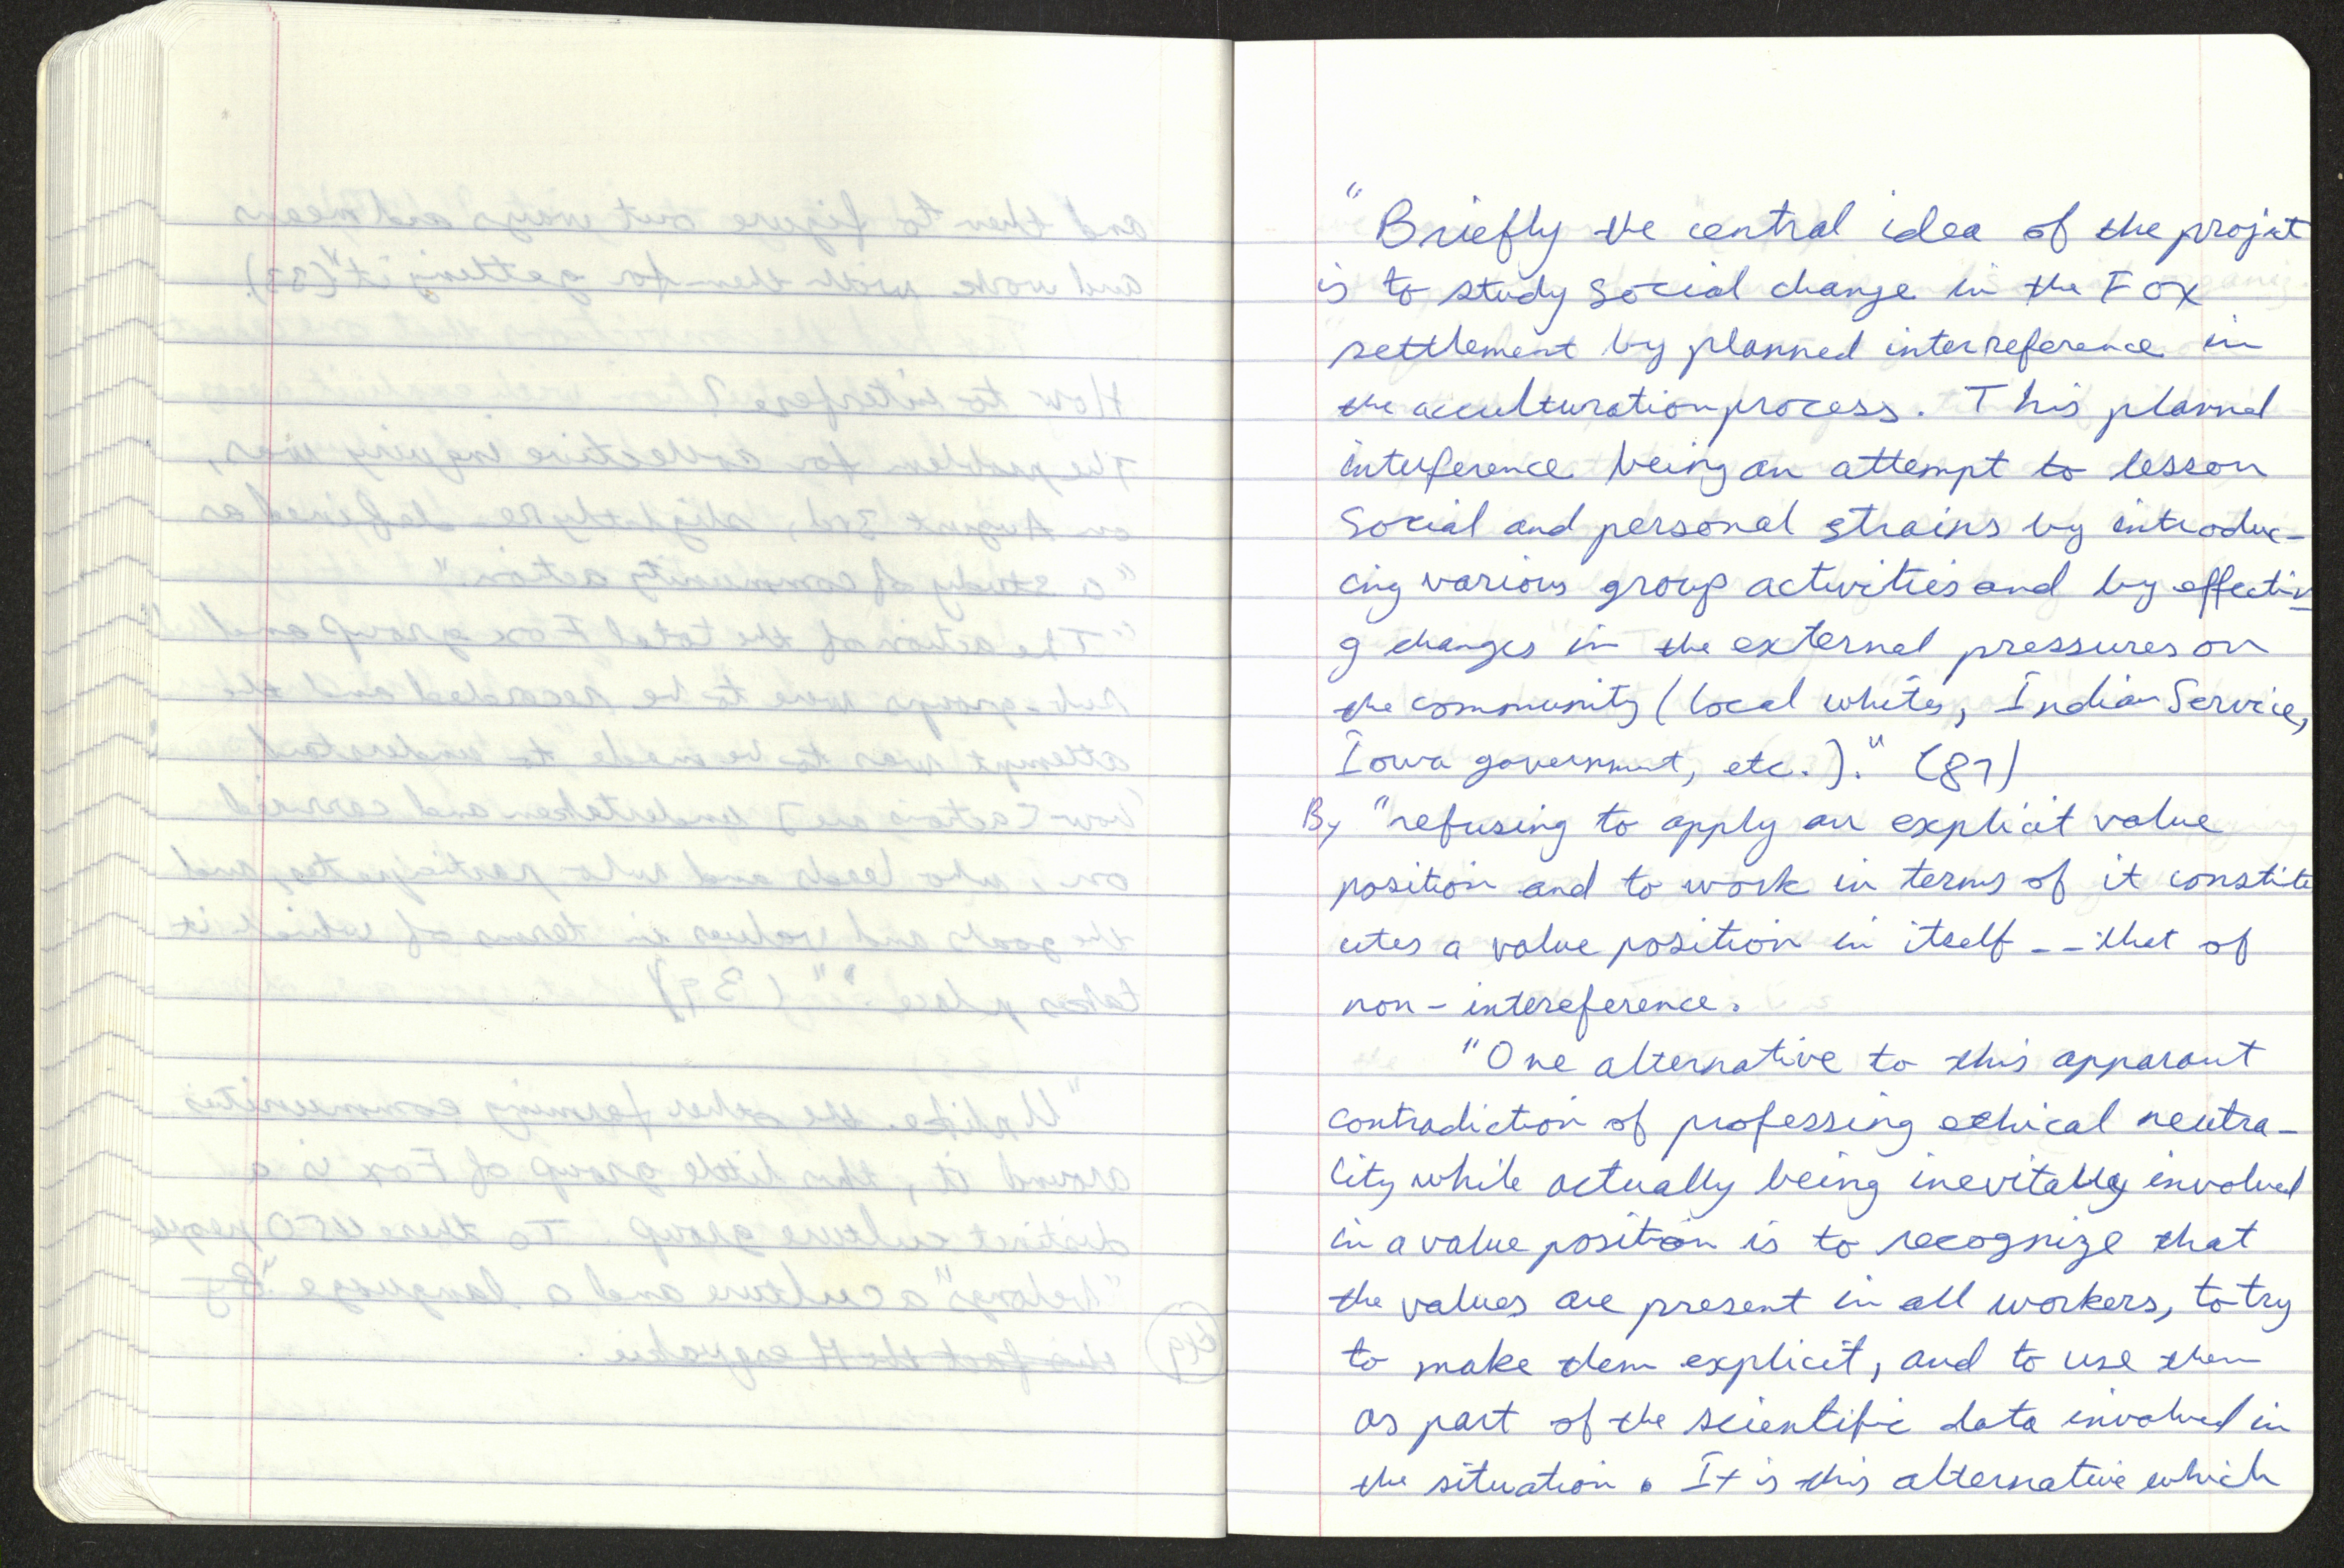 "Briefly the central idea of the projet
is to study social change in the Fox
settlement by planned interreference in
the acculturation process. This planned
interference being an attempt to lesson
Social and personal strains by introduc-
cing various group activities and by effectin
g changes in the external pressures on
the community (local whites, Indian Service,
Iowa government, etc.)." (87)
By "refusing to apply an explicit value
position and to work in terms of it constit
utes a value position in itself -- that of
non-intereference.
"One alternative to this apparant
contradiction of professing ethical neutra-
lity while actually being inevitably involved
in a value position is to recognize that
the values are present in all workers, to try
to make them explicit, and to use them
as part of the scientific data involved in
the situation. It is this alternative which